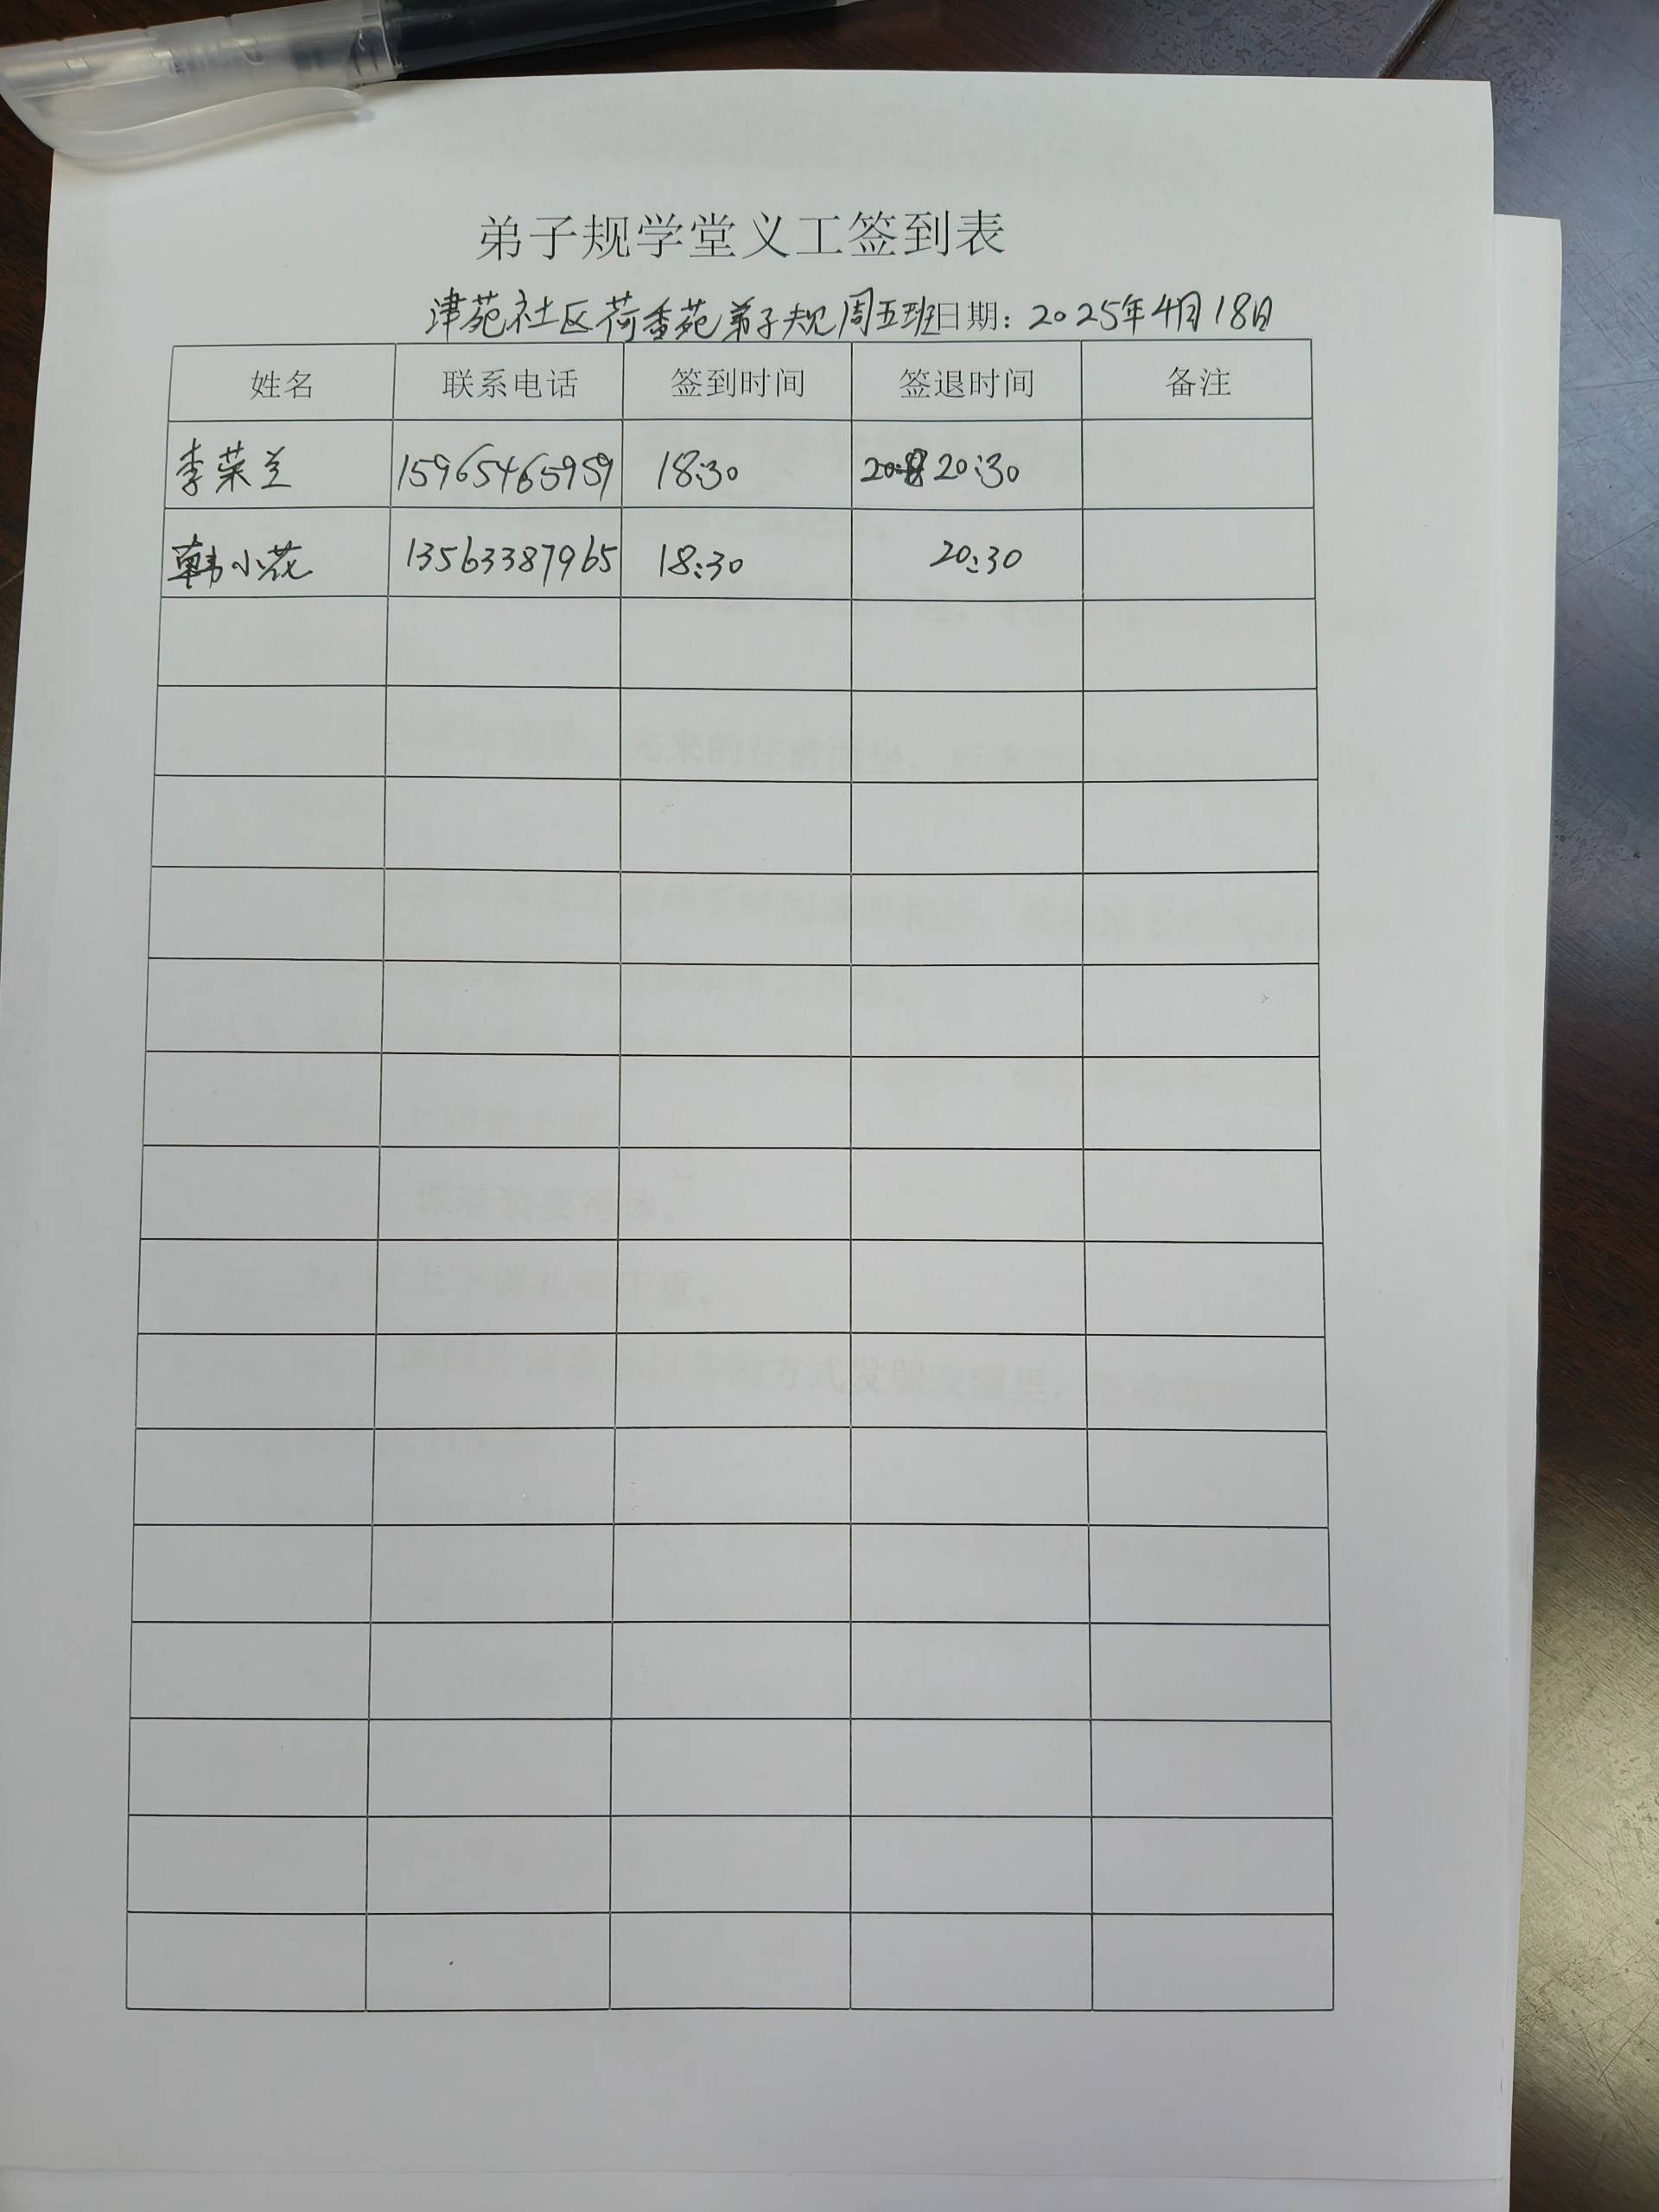 弟子规学堂义工签到表
津苑社区荷香苑弟子规周五班日期：2025年4月18日
姓名 联系电话 签到时间 签退时间 备注
李荣兰 15965465959 18:30 20:30
韩小花 13563387965 18:30 20:30